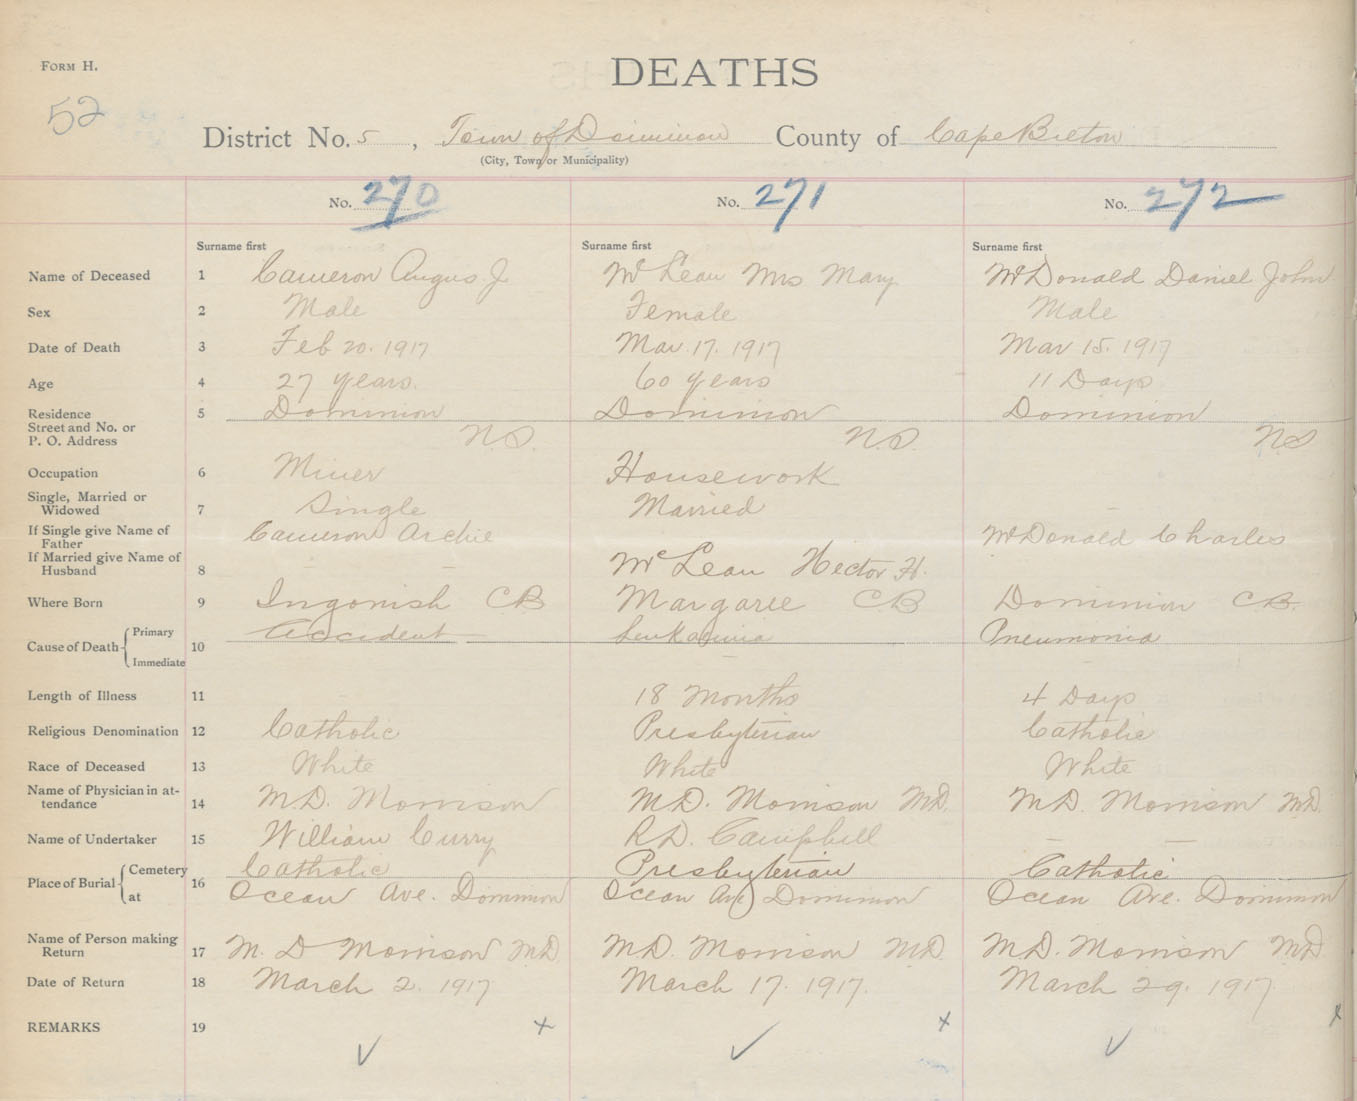 FORM H.
DEATHS
52
District No. 5, Town of Dominion County of Cape Breton
(City, Town or Municipality)
No. 270 No. 271 No. 272
Surname first Surname first Surname first
Name of Deceased 1 Cameron Angus J McLean Mrs Mary McDonald Daniel John
Sex 2 Male Female Male
Date of Death 3 Feb 20. 1917 Mar. 17. 1917 Mar 15. 1917
Age 4 27 years. 60 years 11 Days
Residence 5 Dominion Dominion Dominion
Street and No. or
P. O. Address N.S. N.S. NS
Occupation 6 Miner Housework
Single, Married or
Widowed 7 Single Married
If Single give Name of
Father Cameron Archie McDonald Charles
If Married give Name of
Husband 8 McLean Hector H.
Where Born 9 Ingonish CB Margaree CB Dominion CB.
Cause of Death Primary 10 Accident Leukaemia Pneumonia
Immediate
Length of Illness 11 18 Months 4 Days
Religious Denomination 12 Catholic Presbyterian Catholic
Race of Deceased 13 White White White
Name of Physician in at-
tendance 14 M.D. Morrison M.D. Morrison MD. M.D. Morrison MD.
Name of Undertaker 15 William Curry R.D. Campbell
Place of Burial Cemetery 16 Catholic Presbyterian Catholic
at Ocean Ave. Dominion Ocean Ave Dominion Ocean Ave. Dominion
Name of Person making
Return 17 M. D Morrison MD M.D. Morrison MD. M.D. Morrison MD
Date of Return 18 March 2. 1917 March 17. 1917. March 29. 1917
REMARKS 19 x x x